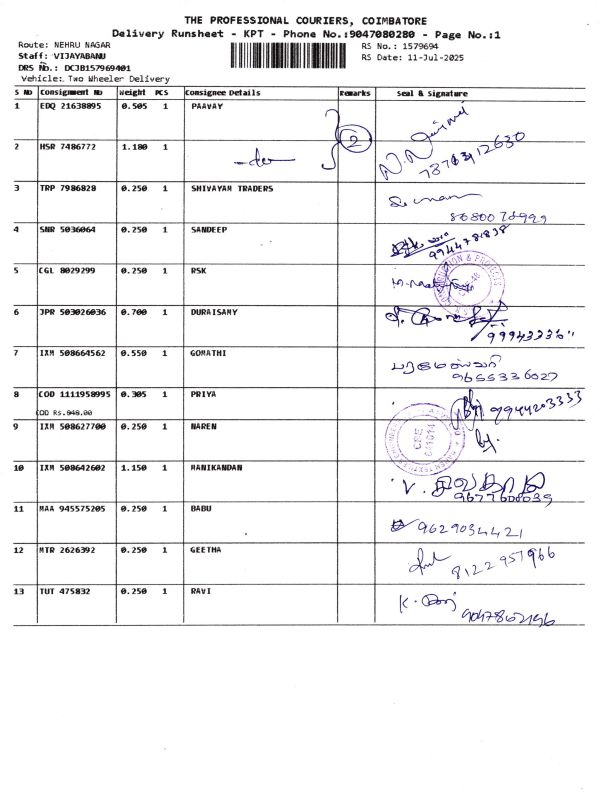 THE PROFESSIONAL COURIERS, COIMBATORE
Delivery Runsheet - KPT - Phone No.:9047080280 - Page No.:1
Route: NEHRU NAGAR
RS No.: 1579694
Staff: VIJAYABANU
RS Date: 11-Jul-2025
DRS No.: DCJB157969401
Vehicle:. Two Wheeler Delivery
S NO Consignment NO Weight PCS Consignee Details Remarks Seal & Signature
1 EDQ 21638895 0.505 1 PAAVAY
2
2 HSR 7486772 1.180 1 -do-
3 TRP 7986828 0.250 1 SHIVAYAM TRADERS
4 SNR 5036064 0.250 1 SANDEEP
5 CGL 8029299 0.250 1 RSK
6 JPR 503026036 0.700 1 DURAISAMY
7 IXM 508664562 0.550 1 GOMATHI
9655336027
8 COD 1111958995 0.305 1 PRIYA 9944203333
COD Rs.848.00
9 IXM 508627700 0.250 1 NAREN
10 IXM 508642602 1.150 1 MANIKANDAN
11 MAA 945575205 0.250 1 BABU 9629034421
12 MTR 2626392 0.250 1 GEETHA 8122957966
13 TUT 475832 0.250 1 RAVI